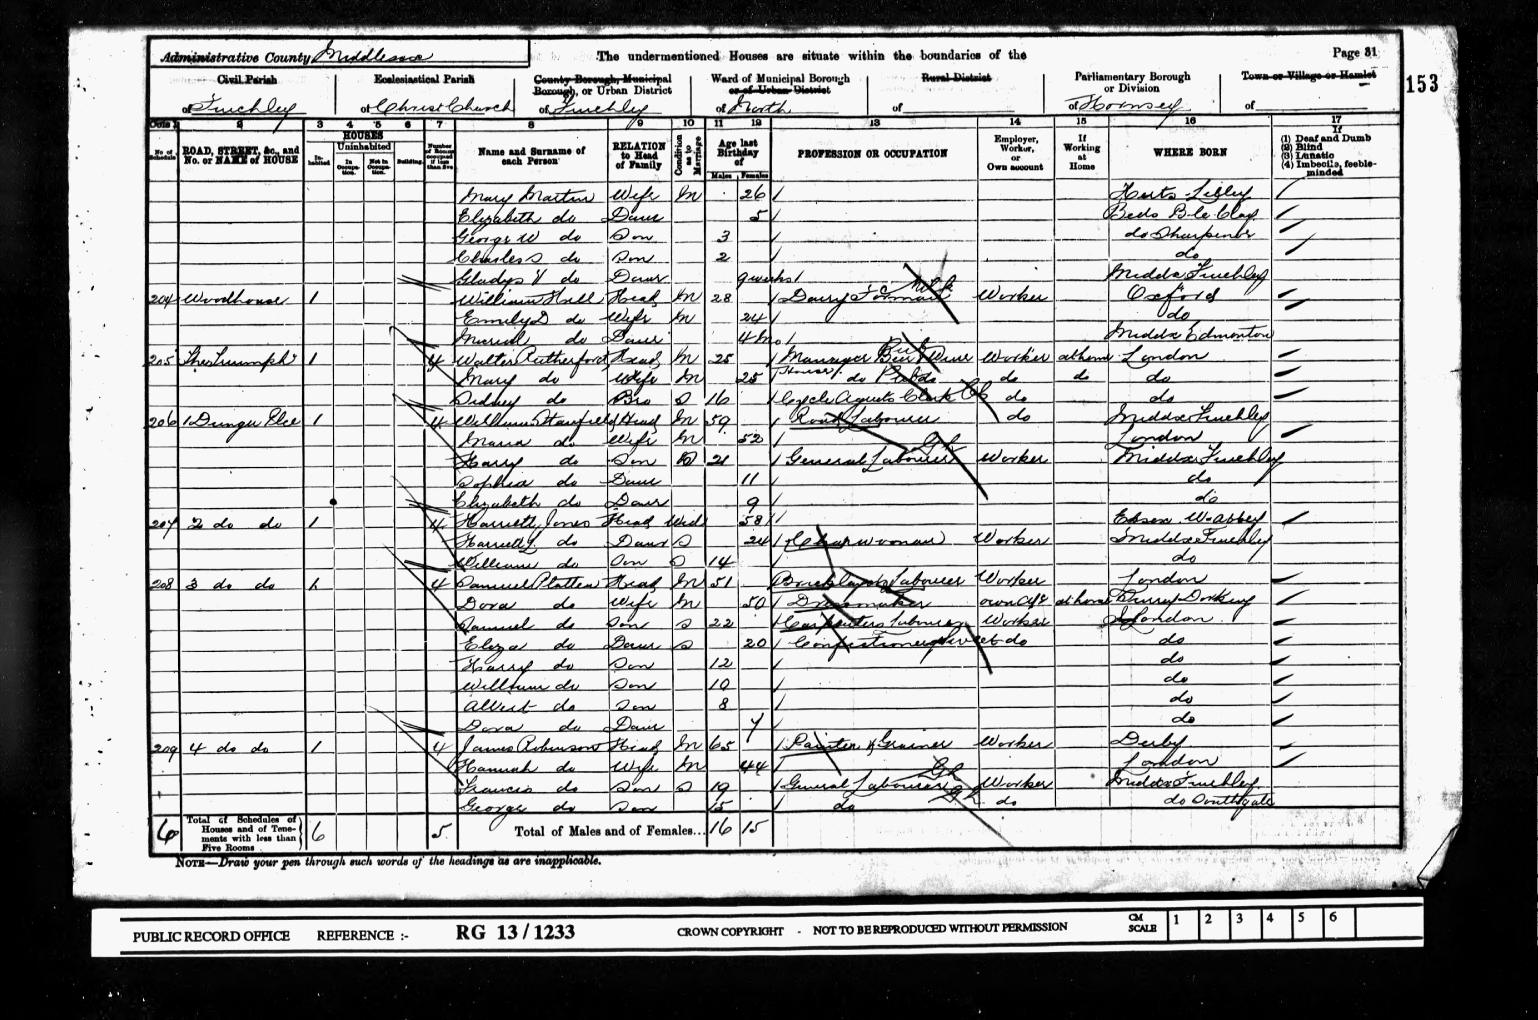 Administrative County Middlesex The undermentioned Houses are situate within the boundaries of the Page 31
153
Civil Parish Ecclesiastical Parish County Borough, Municipal Borough, or Urban District Ward of Municipal Borough or of Urban District Rural District Parliamentary Borough or Division Town or Village or Hamlet
of Finchley of Christ Church of Finchley of North of of Hornsey of
Cols 1 2 3 4 5 6 7 8 9 10 11 12 13 14 15 16 17
No. of Schedule ROAD, STREET, &c., and No. or NAME of HOUSE HOUSES Inhabited Uninhabited In Occupation. Not in Occupation. Building. Number of Rooms occupied if less than five Name and Surname of each Person RELATION to Head of Family Condition as to Marriage Age last Birthday of Males Females PROFESSION OR OCCUPATION Employer, Worker, or Own account If Working at Home WHERE BORN If (1) Deaf and Dumb (2) Blind (3) Lunatic (4) Imbecile, feeble-minded
Mary Martin Wife M 26 Herts
Elizabeth do Daur 5 Beds
George W do Son 3 do Sharpenhoe
Charles S do Son 2 do
Gladys V do Daur 9 weeks Middx Finchley
204 Woodhouse 1 William Hull Head M 28 Dairy Foreman Milk Worker Oxford
Emily D do Wife M 24 do
Muriel do Daur 4 Mo Middx Edmonton
205 The Triumph 1 4 Walter Rutherford Head M 25 Manager Beer Worker at home London
Mary do Wife M 25 House do do do do
Sidney do Bro S 16 Cycle Agents Clerk do do
206 1 Place 1 4 William Stanfield Head M 59 Road Labourer do Middx Finchley
Maria do Wife M 52 London
Harry do Son S 21 General Labourer GL Worker Middx Finchley
Sophia do Daur 11 do
Elizabeth do Daur 9 do
207 2 do do 1 4 Harriett Jones Head Wid 58 Essex W. Abbey
Harriett J. do Daur S 24 Charwoman Worker Middx Finchley
William do Son S 14 do
208 3 do do 1 4 Samuel Platten Head M 51 Bricklayers Labourer Worker London
Dora do Wife M 50 Dressmaker own a/c at home Surrey Dorking
Samuel do Son S 22 Carpenters Labourer Worker London
Eliza do Daur S 20 Confectionery Sweet do do
Harry do Son 12 do
William do Son 10 do
Albert do Son 8 do
Dora do Daur 7 do
209 4 do do 1 4 James Robinson Head M 65 Painter & Grainer Worker Derby
Hannah do Wife M 44 London
Francis do Son S 19 General Labourer GL Worker Middx Finchley
George do Son 15 do GL do do Southgate
6 Total of Schedules of Houses and of Tenements with less than Five Rooms 6 5 Total of Males and of Females... 16 15
NOTE—Draw your pen through such words of the headings as are inapplicable.
PUBLIC RECORD OFFICE REFERENCE :- RG 13 / 1233 CROWN COPYRIGHT - NOT TO BE REPRODUCED WITHOUT PERMISSION CM SCALE 1 2 3 4 5 6